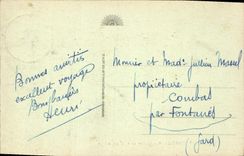 Bonnes amitiés
excellent voyage
Bons baisers
Henri
Monsieur et Mad. Julien Massel
propriétaire
Combas
par Fontanès
(Gard)